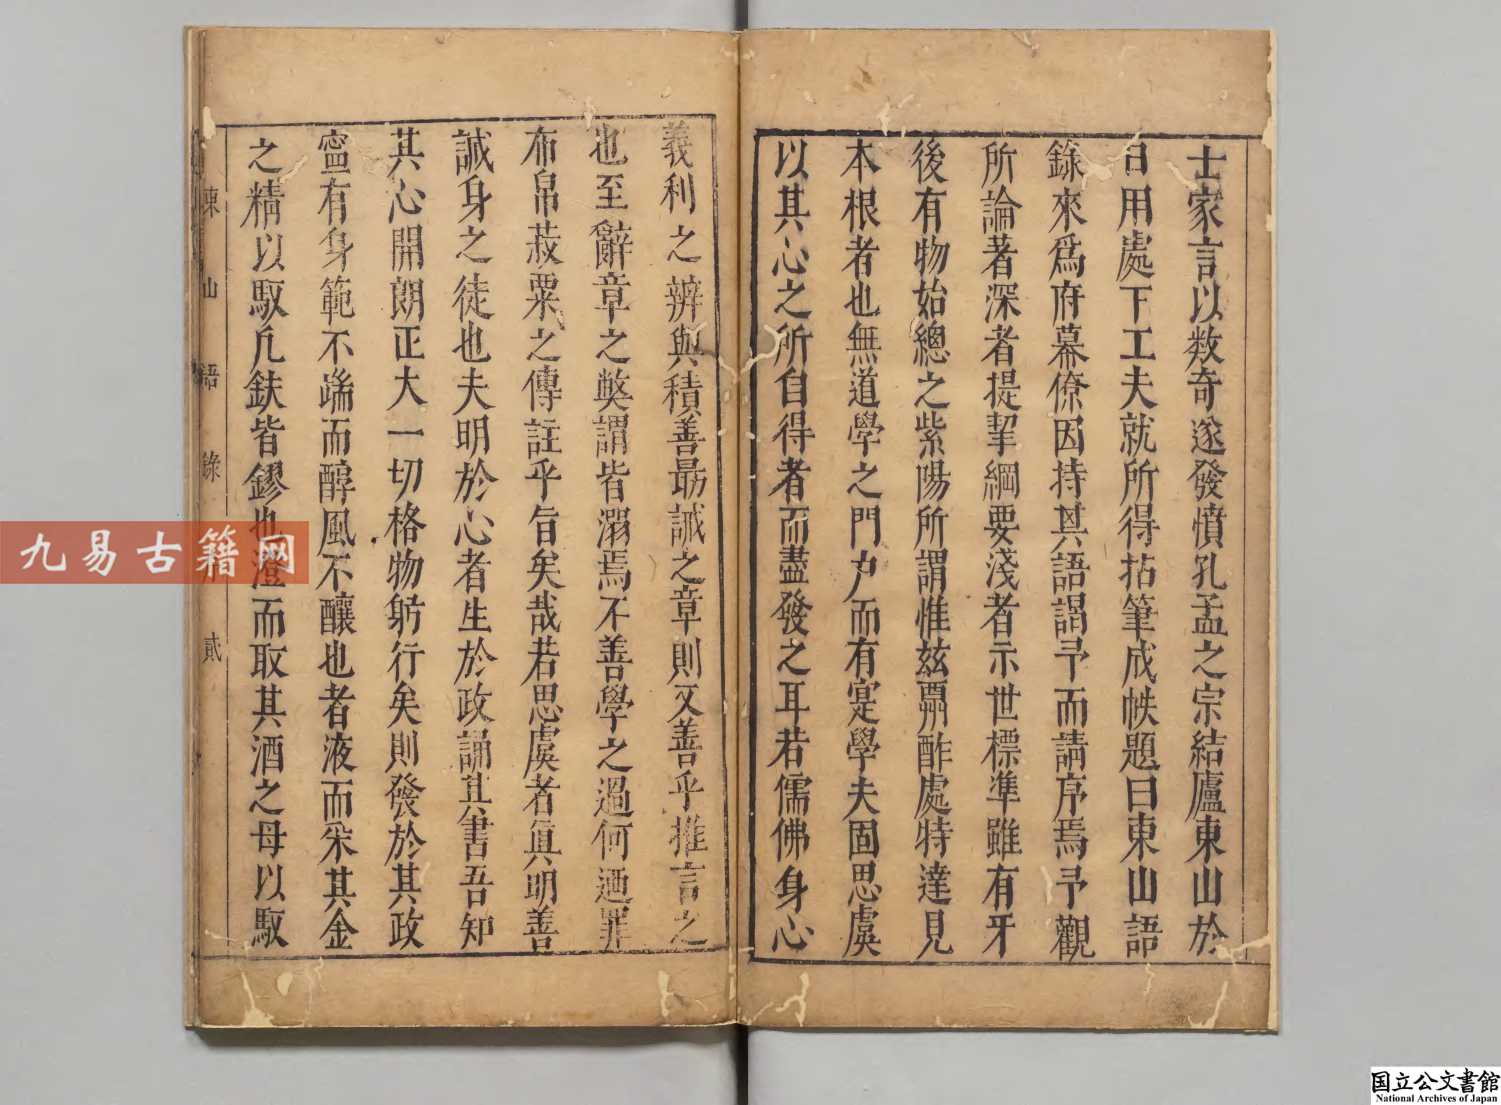 士家言以数奇遂發憤孔孟之宗結廬東山於
日用處下工夫就所得拈筆成帙題曰東山語
錄來爲府幕僚因持其語謁予而請序焉予觀
所論著深者提挈綱要淺者示世標準雖有牙
後有物始總之紫陽所謂惟兹酬酢處特達見
本根者也無道學之門户而有寔學夫固思虞
以其心之所自得者而盡發之耳若儒佛身心
義利之辨與積善最誠之章則又善乎推言之
也至辭章之獘謂皆溺焉不善學之過何迺罪
布帛菽粟之傳註乎旨矣哉若思虞者眞明善
誠身之徒也夫明於心者生於政誦其書吾知
其心開朗正大一切格物躬行矣則發於其政
寍有身範不端而醇風不釀也者液而采其金
之精以馭凡鈇皆鏐也澄而取其酒之母以馭
東山語錄 貳
九易古籍网
国立公文書館
National Archives of Japan